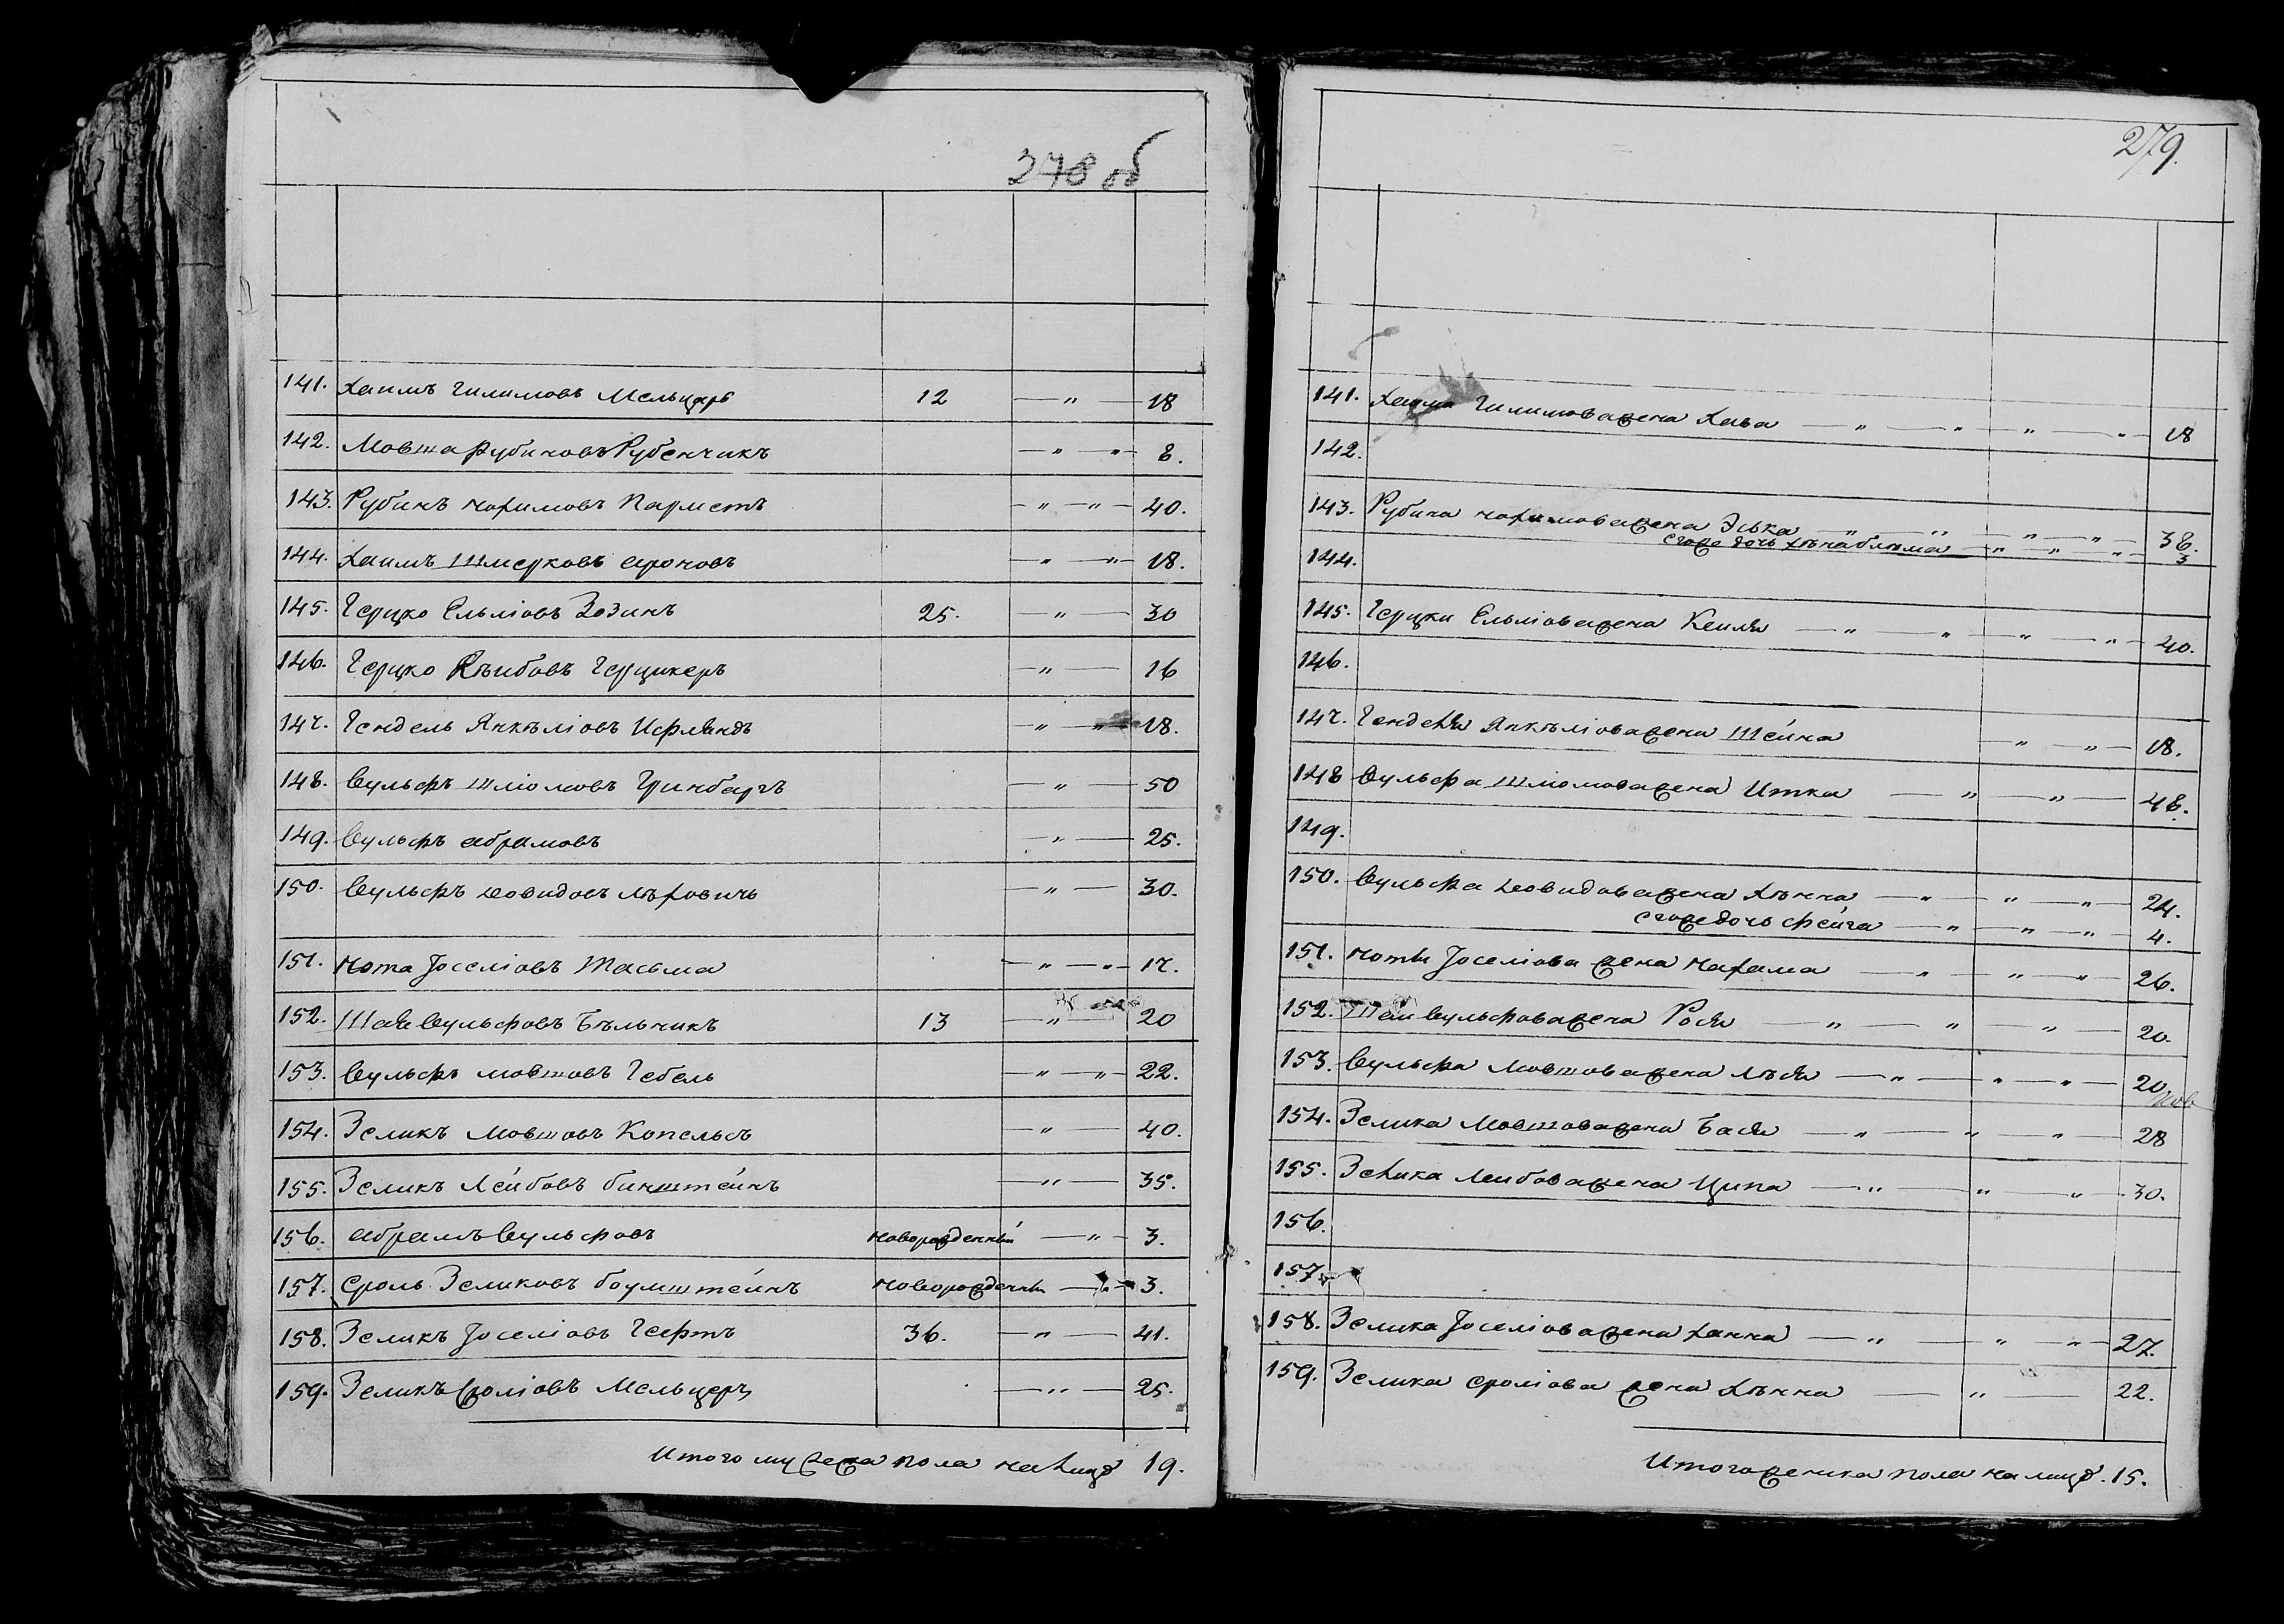 278 об
141. Хаимъ Гилимовъ Мельцеръ 12 — " — 18
142. Мовша Рубиновъ Рубенчикъ — " " — 8.
143. Рубинъ Нохимовъ Парметъ — " — " — 40.
144. Хаимъ Шмерковъ Ароновъ — " — " — 18.
145. Герцко Ельліовъ Зозинъ 25. — " — 30
146. Герцко Лѣибовъ Герцикеръ — " — 16
147. Гендель Янкѣліовъ — " — " — 18.
148. Вульфъ Шліомовъ Гринбаргъ — " — 50
149. Вульфъ Абрамовъ — " — 25.
150. Вульфъ Довидовъ Лѣровичь — " — 30.
151. Нота Іоселіовъ Тасьма — " — " — 17.
152. Шая Вульфовъ Бѣльчикъ 13 — " — 20
153. Вульфъ Мовшовъ Гебель — " — " — 22.
154. Зеликъ Мовшовъ Копельсъ — " — 40.
155. Зеликъ Лейбовъ Бинштейнъ — " — 35.
156. Абрамъ Вульфовъ Новорожденный — " — 3.
157. Сроль Зеликовъ Боумштейнъ Новорожденны — " — 3.
158. Зеликъ Іоселіовъ Гефтъ 36. — " — 41.
159. Зеликъ Сроліовъ Мельцеръ — " — 25.
Итого мужеска пола на лицо 19.
279.
141. Хаима Гилимова жена Хава — " — " — " — " — 18
142.
143. Рубина Нохимова жена Эська — " — " — " — " — 38.
с го же дочь Хѣна блюма — " — " — " — 3
144.
145. Герцки Ельліова жена Кейля — " — " — " — " — 40.
146.
147. Генделя Янкѣліова жена Шейна — " — " — 18.
148 Вульфа Шліомова жена Итка — " — " — 48.
149.
150. Вульфа Довидова жена Хѣнна — " — " — " — 24.
с го же дочь Фейга — " — " — " — 4.
151. Ноты Іоселіова жена Нахама — " — " — " — 26.
152. Шаи Вульфова жена Рося — " — " — " — 20.
153. Вульфа Мовшова жена Лѣя — " — " — " — 20.
154. Зелика Мовшова жена Бася — " — " — " — 28
155. Зелика Лейбова жена Ципа — " — " — " — 30.
156.
157.
158. Зелика Іоселіова жена Ханна — " — " — " — 27.
159. Зелика Сроліова жена Хѣнна — " — 22.
Итого женска пола на лицо. 15.